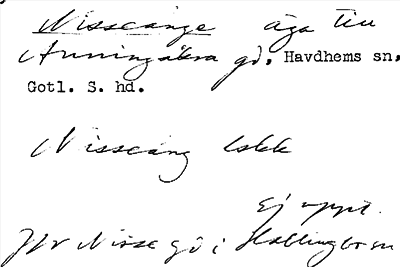 Nisseänge äga till
Anningåkra gd, Havdhems sn,
Gotl. S. hd.
Nisseäng Lskk
Ej uppt.
Jfr Nisse gd i Hablingbo sn